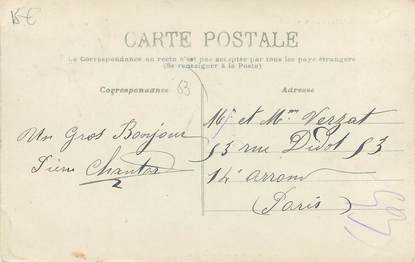 15€
CARTE POSTALE
La Correspondance au recto n'est pas acceptée par tous les pays étrangers
(Se renseigner à la Poste)
Correspondance
63
Adresse
Un Gros Bonjour
Chantos
Mr et Mme Verzat
53 rue Didot 53
14e arrond
(Paris)